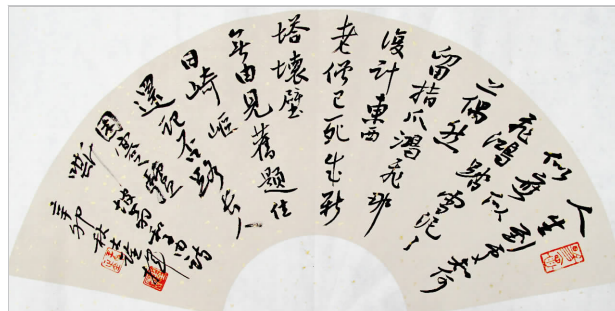 人生到處知何
似應似
飛鴻踏雪泥々
上偶然
留指爪鴻飛那
復計東西
老僧已死成新
塔壞壁
無由見舊題往
日崎嶇
還記否路長人
困蹇驢
嘶
辛卯秋